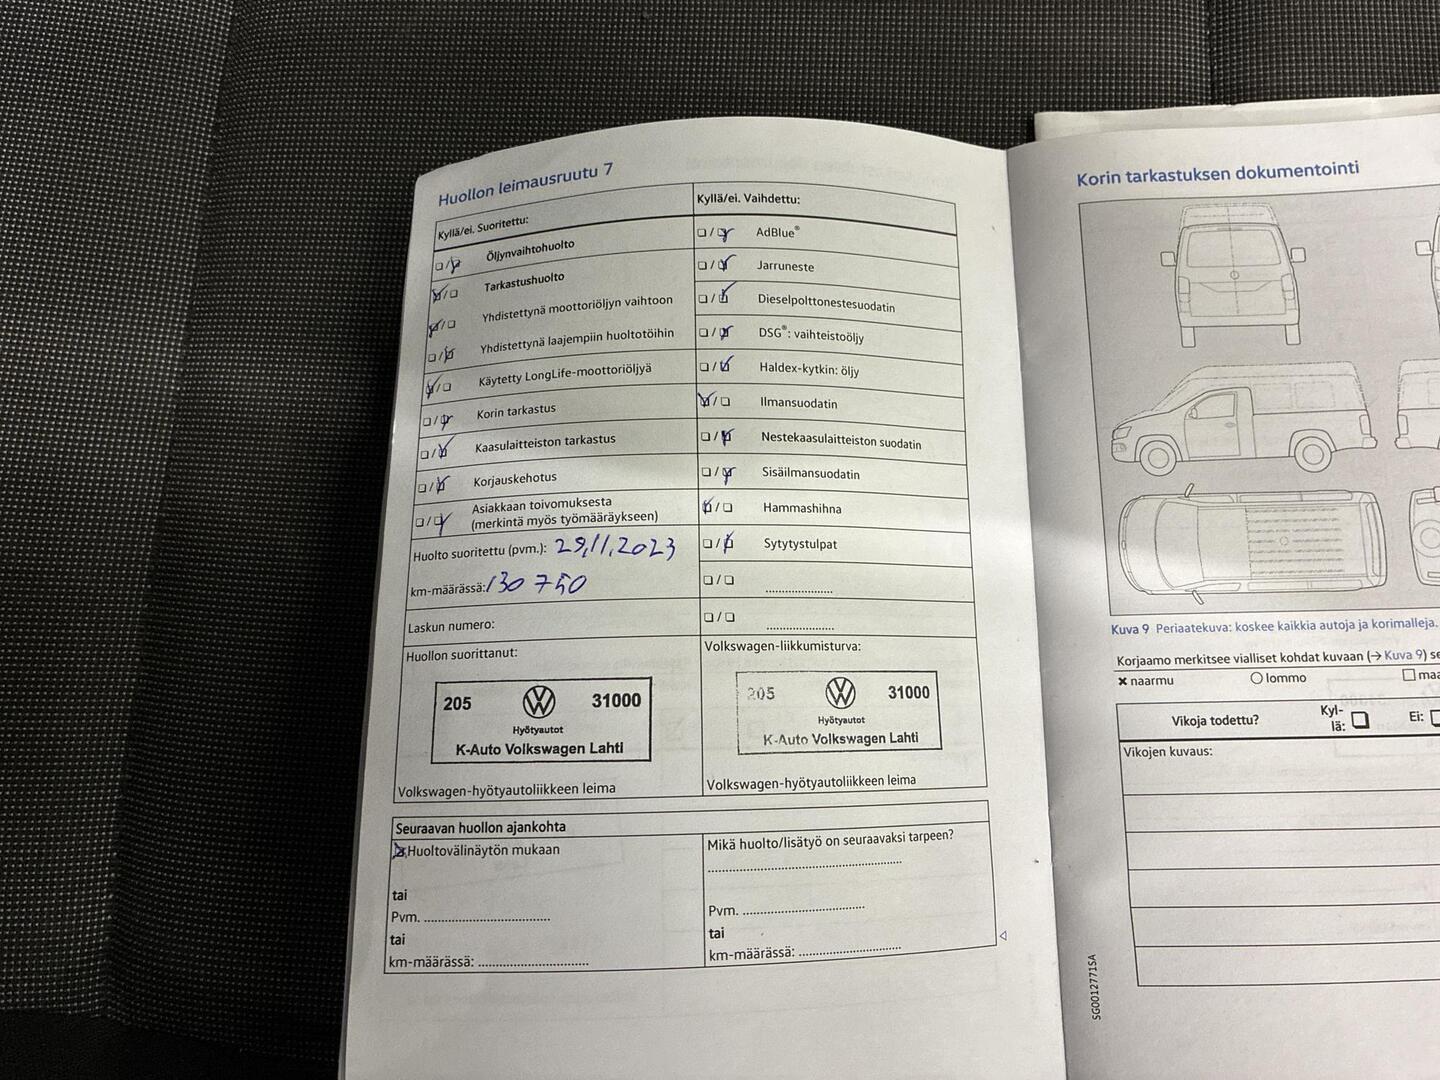 Huollon leimausruutu 7
Kyllä/ei. Suoritettu:
Öljynvaihtohuolto
Tarkastushuolto
Yhdistettynä moottoriöljyn vaihtoon
Yhdistettynä laajempiin huoltotöihin
Käytetty LongLife-moottoriöljyä
Korin tarkastus
Kaasulaitteiston tarkastus
Korjauskehotus
Asiakkaan toivomuksesta
(merkintä myös työmääräykseen)
Huolto suoritettu (pvm.): 29.11.2023
km-määrässä: 130 750
Laskun numero:
Huollon suorittanut:
205 31000
Hyötyautot
K-Auto Volkswagen Lahti
Volkswagen-hyötyautoliikkeen leima
Kyllä/ei. Vaihdettu:
AdBlue®
Jarruneste
Dieselpolttonestesuodatin
DSG®: vaihteistoöljy
Haldex-kytkin: öljy
Ilmansuodatin
Nestekaasulaitteiston suodatin
Sisäilmansuodatin
Hammashihna
Sytytystulpat
Volkswagen-liikkumisturva:
205 31000
Hyötyautot
K-Auto Volkswagen Lahti
Volkswagen-hyötyautoliikkeen leima
Seuraavan huollon ajankohta
Huoltovälinäytön mukaan
tai
Pvm.
tai
km-määrässä:
Mikä huolto/lisätyö on seuraavaksi tarpeen?
Pvm.
tai
km-määrässä:
Korin tarkastuksen dokumentointi
Kuva 9 Periaatekuva: koskee kaikkia autoja ja korimalleja.
Korjaamo merkitsee vialliset kohdat kuvaan (→ Kuva 9) se
naarmu lommo maa
Vikoja todettu? Kyl-
lä: Ei:
Vikojen kuvaus:
SG0012771SA